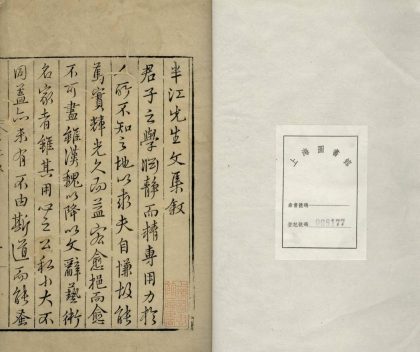 上海圖書館
登記號碼
半江先生文集叙
君子之學淵靜而精專用力於
人所不知之地以求夫自慊故能
篤實輝光久而益宏愈挹而愈
不可盡雖漢魏以降以文辭藝術
名家者雖其用心之公私小大不
同蓋亦未有不由斯道而能蚤